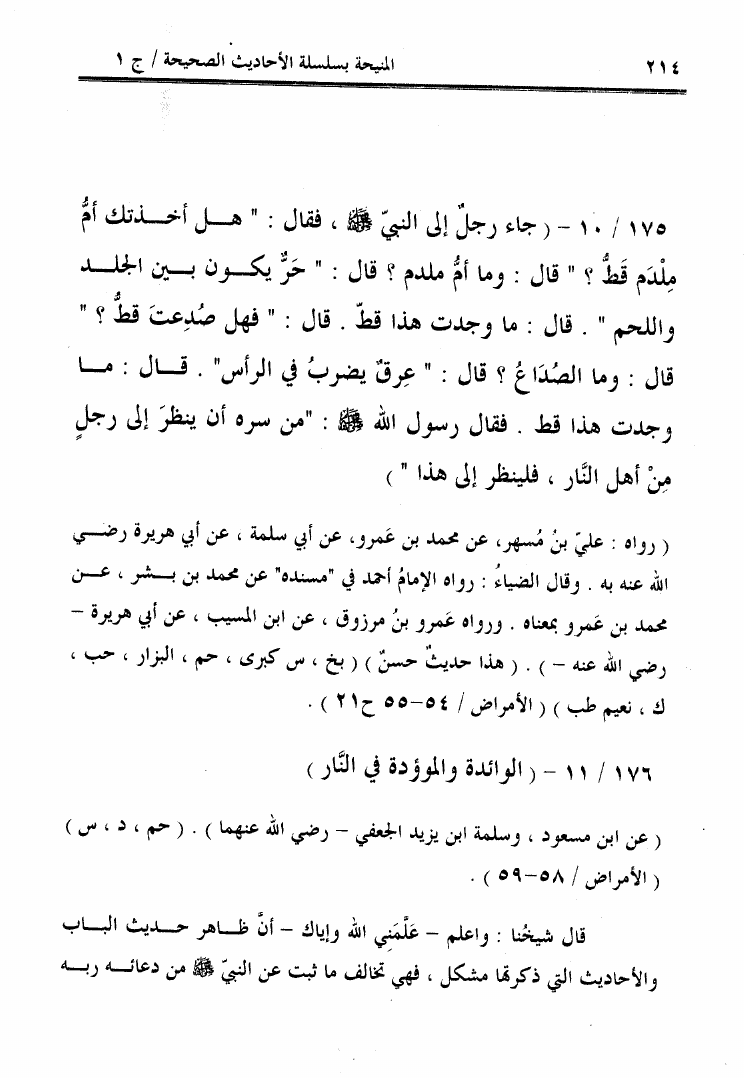 ٢١٤ المنيحة بسلسلة الأحاديث الصحيحة / ج ١
١٧٥ / ١٠ - ( جاء رجلٌ إلى النبيّ ﷺ ، فقال : " هـــل أخـــذتك أمُّ
مِلْدَم قَطُّ ؟ " قال : وما أمُّ ملدم ؟ قال : " حَرٌّ يكـــون بـــين الجلـــد
واللحم " . قال : ما وجدت هذا قطّ . قال : " فهل صُدِعتَ قطُّ ؟ "
قال : وما الصُدَاعُ ؟ قال : " عِرقٌ يضربُ في الرأس" . قـــال : مـــا
وجدت هذا قط . فقال رسول الله ﷺ : "من سره أن ينظرَ إلى رجلٍ
مِنْ أهل النَّار ، فلينظر إلى هذا " )
( رواه : عليّ بنُ مُسهر، عن محمد بن عَمرو، عن أبي سلمة ، عن أبي هريرة رضـــي
الله عنه به . وقال الضياءُ : رواه الإمامُ أحمد في "مسنده" عن محمد بن بـــشر ، عـــن
محمد بن عَمرو بمعناه . ورواه عَمرو بنُ مرزوق ، عن ابن المسيب ، عن أبي هريرة –
رضي الله عنه – ) . ( هذا حديثٌ حسنٌ ) ( بخ ، س كبرى ، حم ، البزار ، حب ،
ك ، نعيم طب ) ( الأمراض / ٥٤-٥٥ ح٢١ ) .
١٧٦ / ١١ - ( الوائدة والموؤدة في النَّار )
( عن ابن مسعود ، وسلمة ابن يزيد الجعفي – رضي الله عنهما ) . ( حم ، د ، س )
( الأمراض / ٥٨-٥٩ ) .
قال شيخُنا : واعلم – عَلَّمَنِي الله وإياك – أنَّ ظـــاهر حـــديث البـــاب
والأحاديث التي ذكرتها مشكل ، فهي تخالف ما ثبت عن النبيّ ﷺ من دعائـــه ربـــه